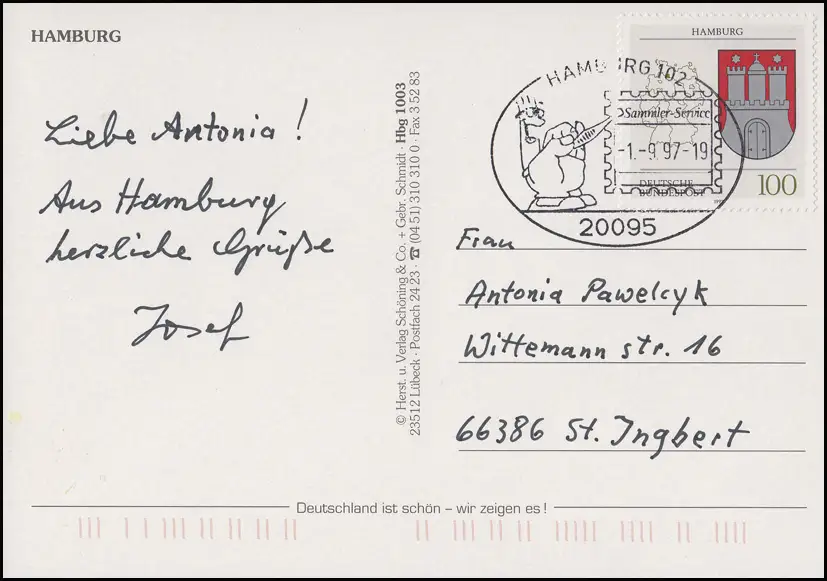 HAMBURG
Liebe Antonia!
Aus Hamburg
herzliche Grüße
Josef
© Herst. u. Verlag Schöning & Co. + Gebr. Schmidt · Hbg 1003
23512 Lübeck · Postfach 24 23 · ☎ (04 51) 310 310 0 · Fax 3 52 83
HAMBURG
DEUTSCHE
BUNDESPOST
100
HAMBURG 102
Sammler-Service
-1.-9.97-19
20095
Frau
Antonia Pawelcyk
Wittemann str. 16
66386 St. Ingbert
Deutschland ist schön – wir zeigen es!